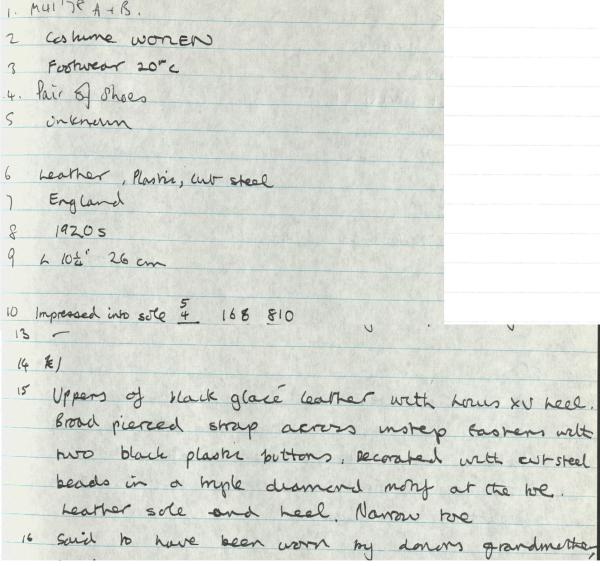 1. M41 '78 A + B.
2 Costume WOMEN
3 Footwear 20thc
4. Pair of Shoes
5 unknown
6 Leather, Plastic, cut steel
7 England
8 1920s
9 L 10¼" 26 cm
10 Impressed into sole 5/4 168 810
13 —
14
15 Uppers of black glacé leather with Louis XV heel.
Broad pierced strap across instep fastens with
two black plastic buttons. Decorated with cut steel
beads in a triple diamond motif at the toe.
Leather sole and heel. Narrow toe
16 Said to have been worn by donors grandmother,